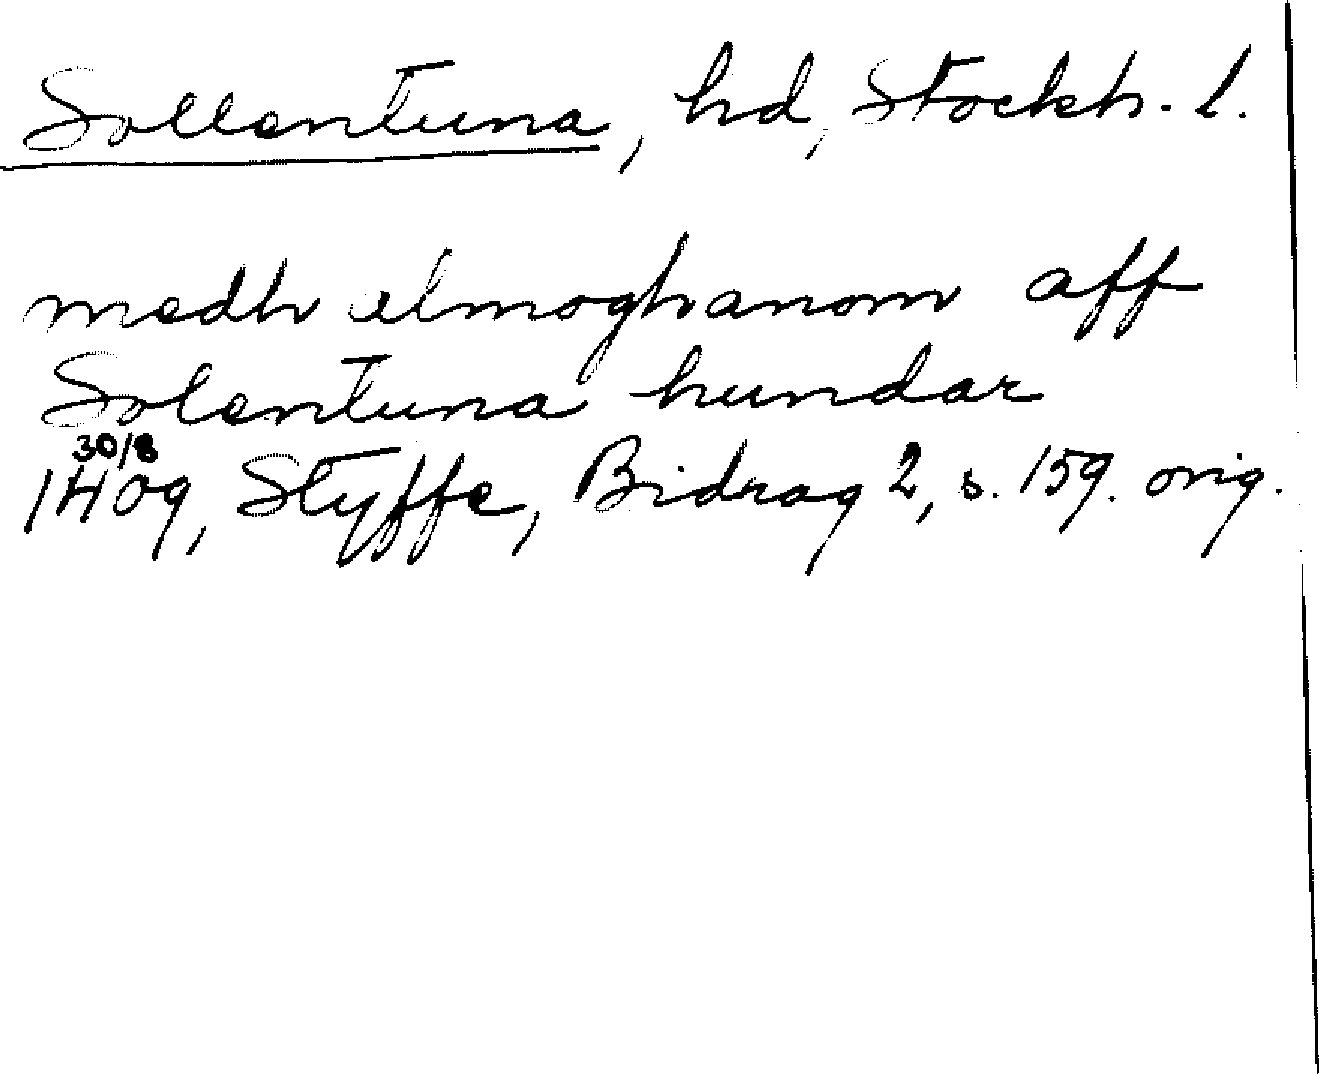 Sollentuna, hd, Stockh. l.
medh almoghanom aff
Solentuna hundar
30/8
1409, Styffe, Bidrag 2, s. 159. orig.